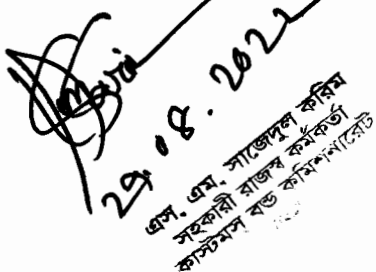 29.08.2022
এস. এম. সাজেদুল করিম
সহকারী রাজস্ব কর্মকর্তা
কাস্টমস বন্ড কমিশনারেট